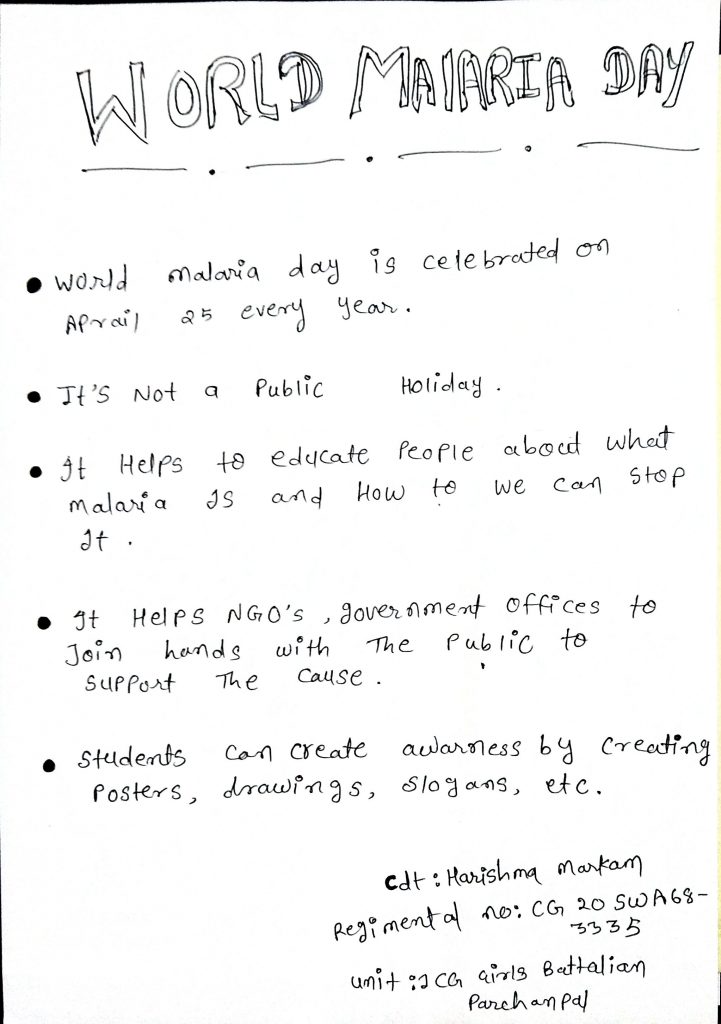 WORLD MALARIA DAY
• World malaria day is celebrated on
Aprail 25 every year.
• It's Not a Public Holiday.
• It Helps to educate People about what
malaria Is and How to we can stop
It.
• It Helps NGO's, government offices to
Join hands with The Public to
support The cause.
• Students can create awarness by creating
Posters, drawings, slogans, etc.
Cdt: Harishma Markam
Regimental no: CG 20 SWA68-
3335
unit: 1 CG Girls Battalian
Parchanpal